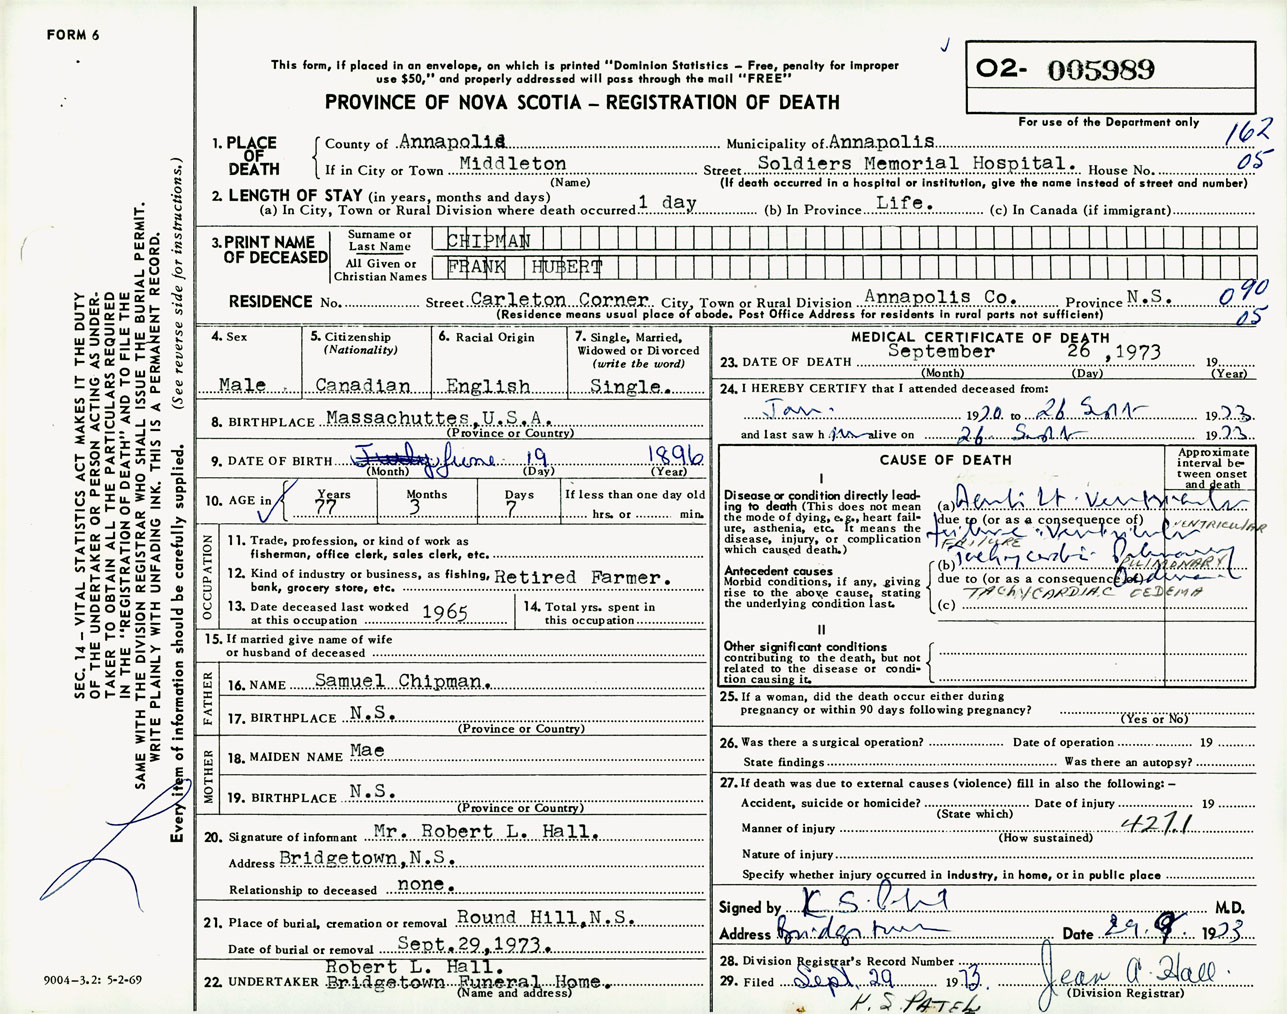 FORM 6
This form, if placed in an envelope, on which is printed "Dominion Statistics – Free, penalty for improper
use $50," and properly addressed will pass through the mail "FREE"
PROVINCE OF NOVA SCOTIA – REGISTRATION OF DEATH
02- 005989
For use of the Department only
162
05
1. PLACE OF DEATH
County of Annapolis Municipality of Annapolis
If in City or Town Middleton Street Soldiers Memorial Hospital. House No.
(Name) (If death occurred in a hospital or institution, give the name instead of street and number)
2. LENGTH OF STAY (in years, months and days)
(a) In City, Town or Rural Division where death occurred 1 day (b) In Province Life. (c) In Canada (if immigrant)
3. PRINT NAME OF DECEASED
Surname or Last Name CHIPMAN
All Given or Christian Names FRANK HUBERT
RESIDENCE No. Street Carleton Corner City, Town or Rural Division Annapolis Co. Province N.S.
(Residence means usual place of abode. Post Office Address for residents in rural parts not sufficient)
090
05
4. Sex
Male
5. Citizenship
(Nationality)
Canadian
6. Racial Origin
English
7. Single, Married,
Widowed or Divorced
(write the word)
Single.
8. BIRTHPLACE Massachuttes,U.S.A.
(Province or Country)
9. DATE OF BIRTH June 19 1896
(Month) (Day) (Year)
10. AGE in
Years 77
Months 3
Days 7
If less than one day old
hrs. or min.
OCCUPATION
11. Trade, profession, or kind of work as
fisherman, office clerk, sales clerk, etc.
12. Kind of industry or business, as fishing,
bank, grocery store, etc.
Retired Farmer.
13. Date deceased last worked
at this occupation 1965
14. Total yrs. spent in
this occupation
15. If married give name of wife
or husband of deceased
FATHER
16. NAME Samuel Chipman.
17. BIRTHPLACE N.S.
(Province or Country)
MOTHER
18. MAIDEN NAME Mae
19. BIRTHPLACE N.S.
(Province or Country)
20. Signature of informant Mr. Robert L. Hall.
Address Bridgetown,N.S.
Relationship to deceased none.
21. Place of burial, cremation or removal Round Hill,N.S.
Date of burial or removal Sept.29,1973.
Robert L. Hall.
22. UNDERTAKER Bridgetown Funeral Home.
(Name and address)
MEDICAL CERTIFICATE OF DEATH
23. DATE OF DEATH September 26 ,1973 19
(Month) (Day) (Year)
24. I HEREBY CERTIFY that I attended deceased from:
Jan. 1970 to 26 Sept 1973
and last saw him alive on 26 Sept 1973
CAUSE OF DEATH
Approximate
interval be-
tween onset
and death
I
Disease or condition directly lead-
ing to death (This does not mean
the mode of dying, e.g., heart fail-
ure, asthenia, etc. It means the
disease, injury, or complication
which caused death.)
(a) Acute Lt. Ventricular
due to (or as a consequence of)
VENTRICULAR
failure Ventricular
FAILURE
(b) Tachycardia Pulmonary
PULMONARY
Antecedent causes
Morbid conditions, if any, giving
rise to the above cause, stating
the underlying condition last.
due to (or as a consequence of) Oedema
TACHYCARDIAC OEDEMA
(c)
II
Other significant conditions
contributing to the death, but not
related to the disease or condi-
tion causing it.
25. If a woman, did the death occur either during
pregnancy or within 90 days following pregnancy?
(Yes or No)
26. Was there a surgical operation? Date of operation 19
State findings Was there an autopsy?
27. If death was due to external causes (violence) fill in also the following: –
Accident, suicide or homicide? Date of injury 19
(State which)
4271
Manner of injury
(How sustained)
Nature of injury
Specify whether injury occurred in industry, in home, or in public place
Signed by K S Patel M.D.
Address Bridgetown Date 29. 9. 1973
28. Division Registrar's Record Number
29. Filed Sept. 29 1973. Jean A. Hall.
(Division Registrar)
K. S. PATEL
SEC. 14 – VITAL STATISTICS ACT MAKES IT THE DUTY
OF THE UNDERTAKER OR PERSON ACTING AS UNDER-
TAKER TO OBTAIN ALL THE PARTICULARS REQUIRED
IN THE "REGISTRATION OF DEATH" AND TO FILE THE
SAME WITH THE DIVISION REGISTRAR WHO SHALL ISSUE THE BURIAL PERMIT.
WRITE PLAINLY WITH UNFADING INK. THIS IS A PERMANENT RECORD.
Every item of information should be carefully supplied. (See reverse side for instructions.)
9004–3.2: 5-2-69